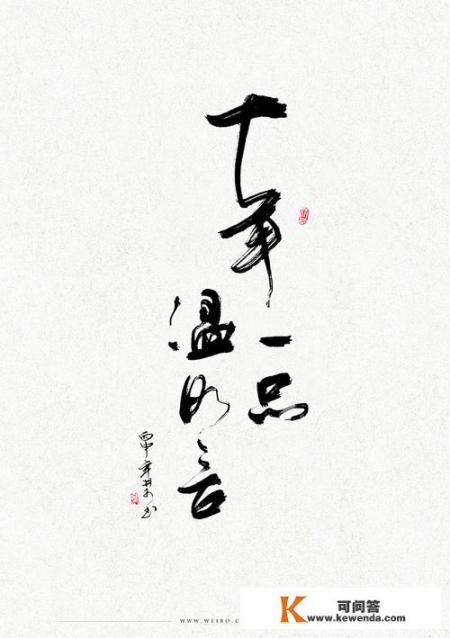 十年一品
温如言
丙申年 书
WWW.WEIBO.C
K 可问答
www.kewenda.com